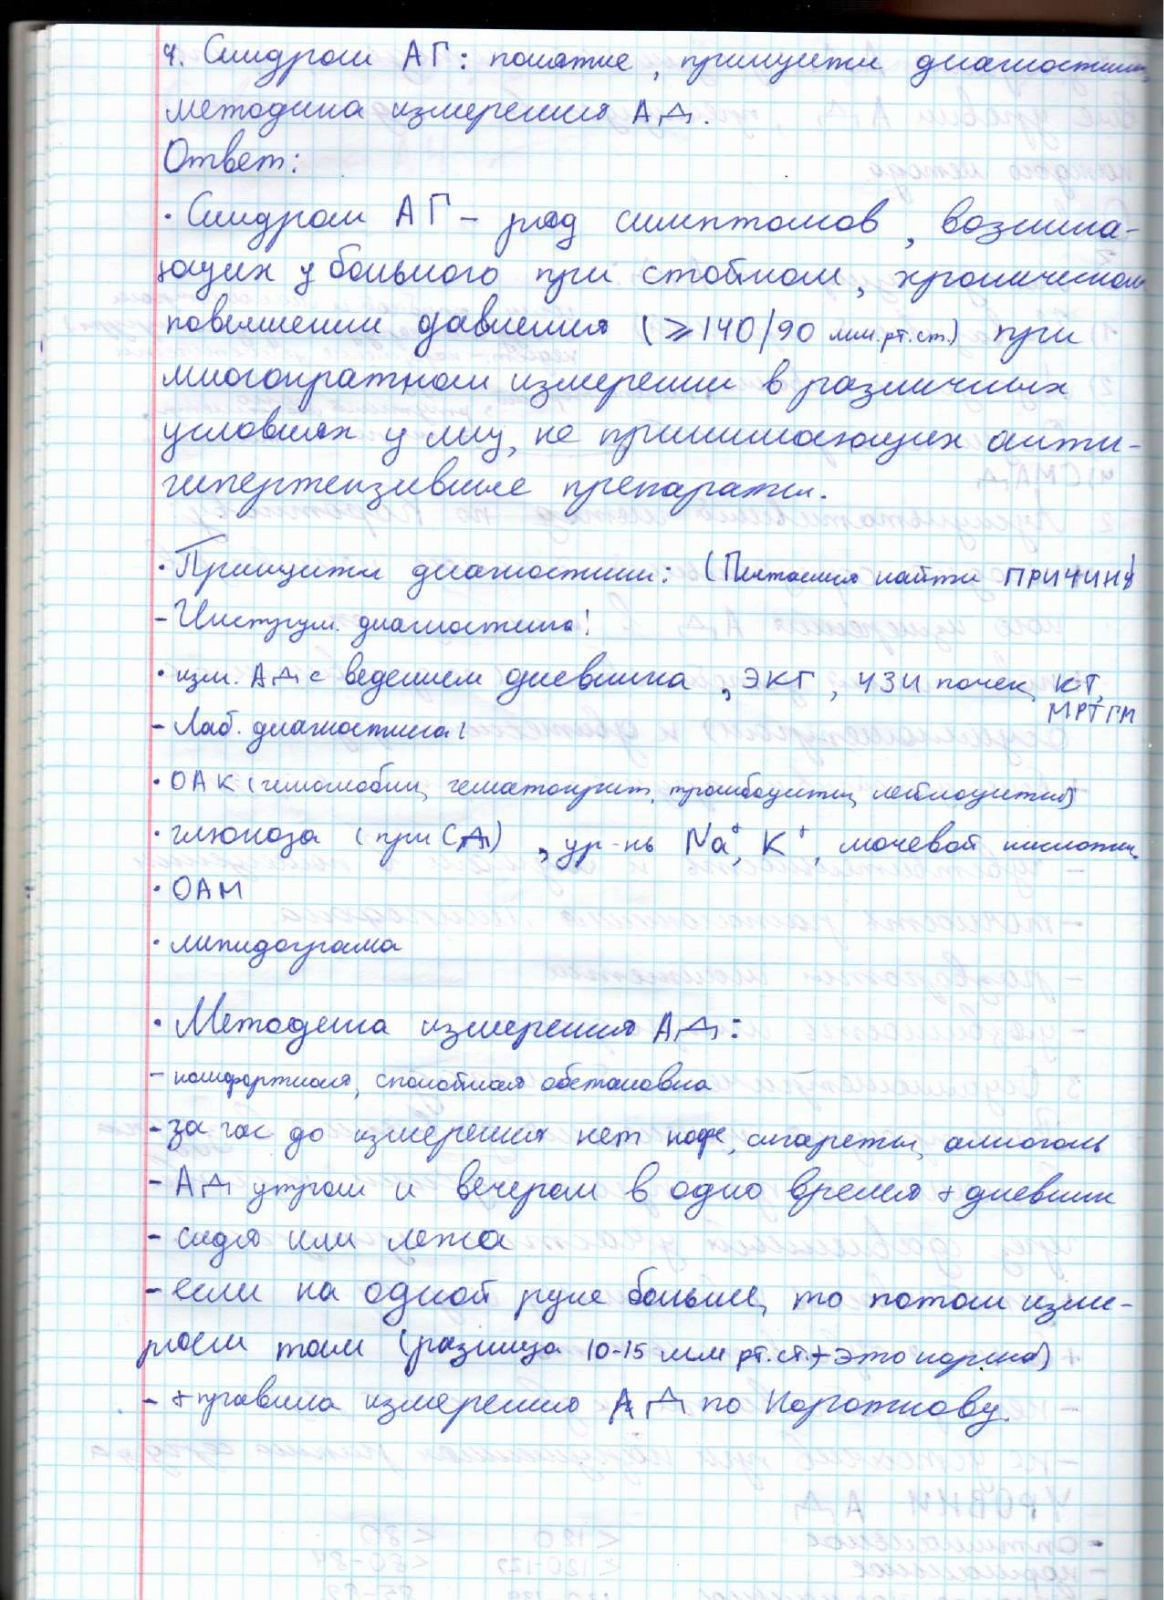 4. Синдром АГ: понятие, принципы диагностики,
методика измерения АД.
Ответ:
· Синдром АГ – ряд симптомов, возника-
ющих у больного при стойком, хроническом
повышении давления (≥140/90 мм.рт.ст.) при
многократном измерении в различных
условиях у лиц, не принимающих анти-
гипертензивные препараты.
· Принципы диагностики: (Пытаемся найти ПРИЧИНУ)
- Инструм. диагностика:
· изм. АД с ведением дневника, ЭКГ, УЗИ почек, КТ,
МРТ ГМ
- Лаб. диагностика:
· ОАК (гемоглобин, гематокрит, тромбоциты, лейкоциты)
· глюкоза (при СД), ур-нь Na⁺, K⁺, мочевой кислоты
· ОАМ
· липидограма
· Методика измерения АД:
- комфортная, спокойная обстановка
- за час до измерения нет кофе, сигареты, алкоголь
- АД утром и вечером в одно время + дневник
- сидя или лежа
- если на одной руке больше, то потом изме-
ряем там (разница 10-15 мм рт.ст. → это норма)
- + правила измерения АД по Короткову.